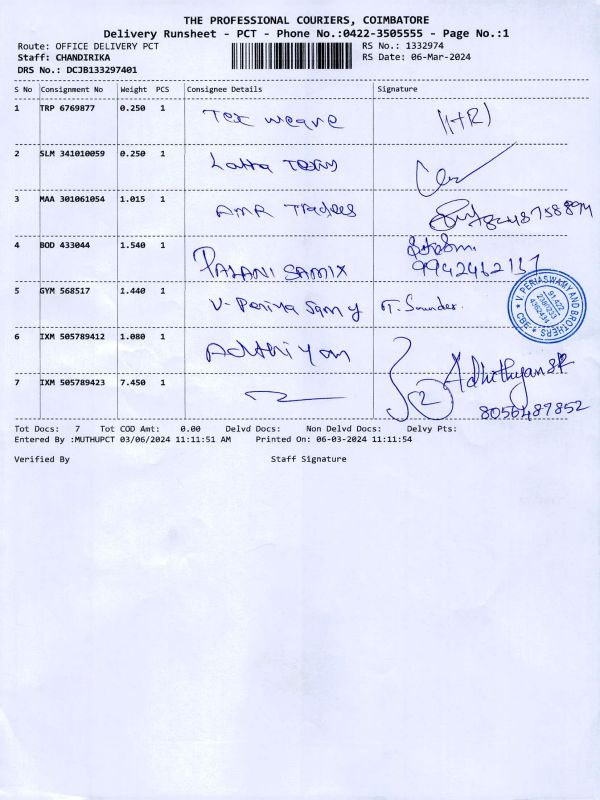 THE PROFESSIONAL COURIERS, COIMBATORE
Delivery Runsheet - PCT - Phone No.:0422-3505555 - Page No.:1
Route: OFFICE DELIVERY PCT RS No.: 1332974
Staff: CHANDIRIKA RS Date: 06-Mar-2024
DRS No.: DCJB133297401
S No Consignment No Weight PCS Consignee Details Signature
1 TRP 6769877 0.250 1 Tex weave
2 SLM 341010059 0.250 1 Latha
3 MAA 301061054 1.015 1 AMR Traders
4 BOD 433044 1.540 1 PALANI SAMIX 9942462137
5 GYM 568517 1.440 1 V. Periya Samy T. Saunder
V. PERIASWAMY AND BROTHERS
CBE
6 IXM 505789412 1.080 1 Adthiyan Adhithyan SR
7 IXM 505789423 7.450 1 2 8056487852
Tot Docs: 7 Tot COD Amt: 0.00 Delvd Docs: Non Delvd Docs: Delvy Pts:
Entered By :MUTHUPCT 03/06/2024 11:11:51 AM Printed On: 06-03-2024 11:11:54
Verified By Staff Signature